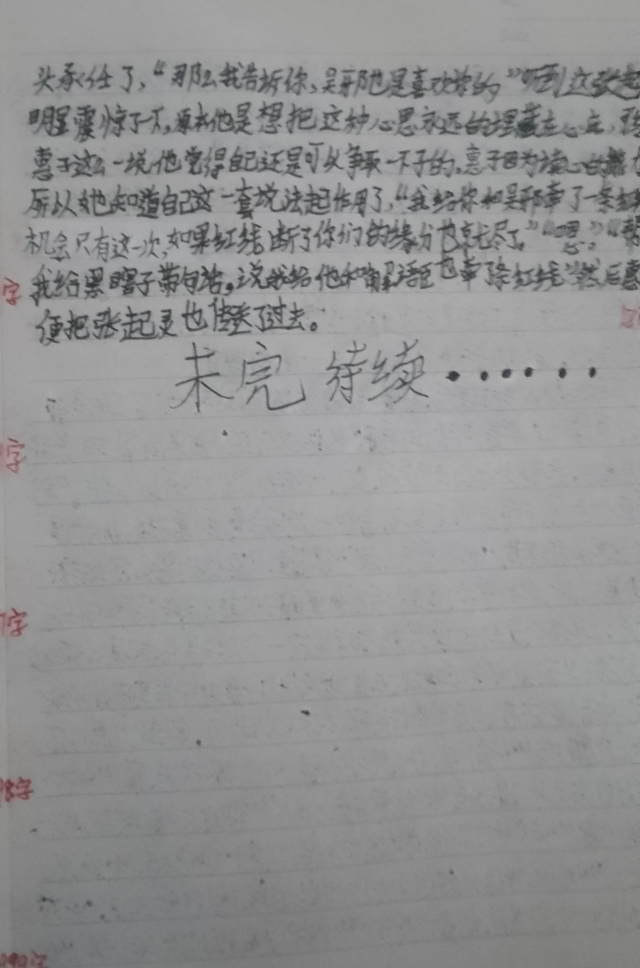 头承任了，“那么我告诉你，吴邪也是喜欢你的”听到这张起
明显震惊了一下，原本他是想把这种心思永远的埋藏在心底，
惠子这么一说，他觉得自己还是可以争取一下子的，惠子因为读心的
所以她知道自己这一套说法起作用了，“我给你和吴邪牵了一条红
机会只有这一次，如果红线断了你们的缘分也就无尽了。”“嗯。”“帮
我给黑瞎子带句话。说我给他和解语臣也牵了条红线”然后惠
便把张起灵也传送了过去。
未完待续·······
字
字
字
字